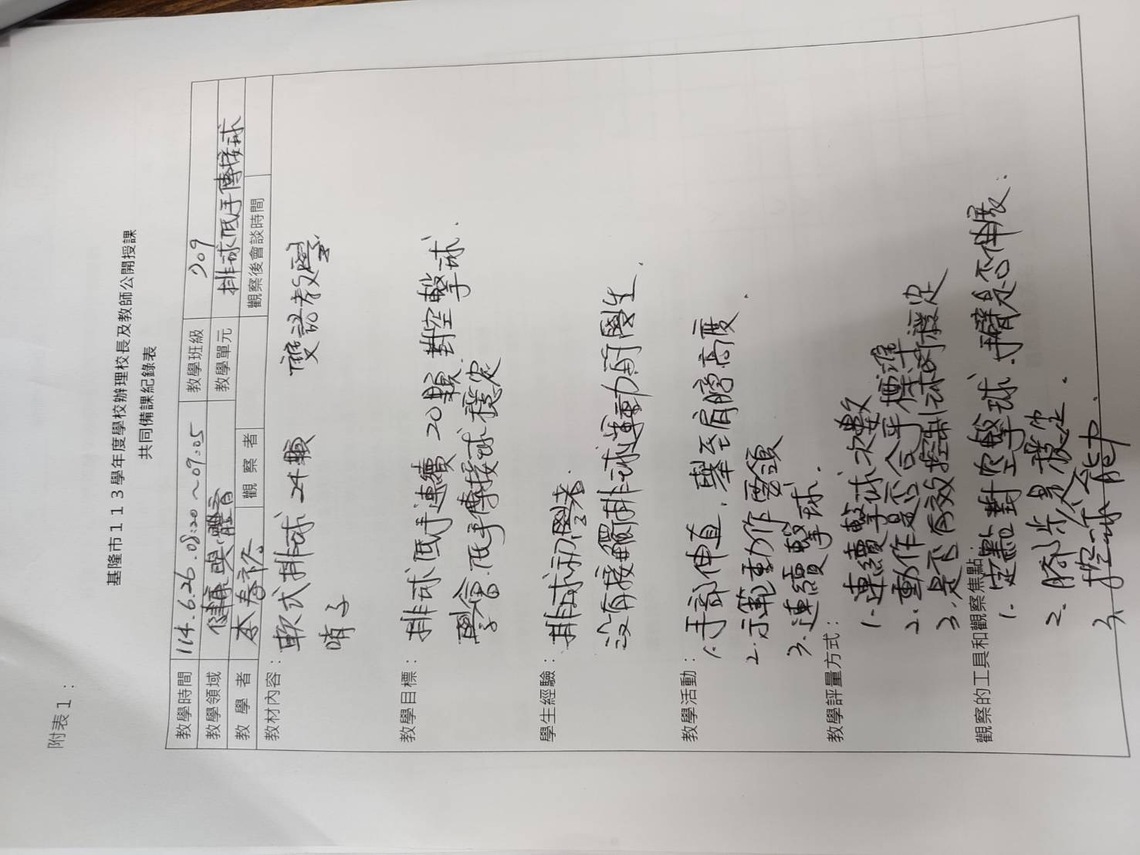 附表1：
基隆市113學年度學校辦理校長及教師公開授課
共同備課紀錄表
教學時間 114.6.26.08:20～09:05 教學班級 909
教學領域 健康與體育 教學單元 排球低手傳接球
教學者 觀察者 觀察後會談時間
教材內容：
軟式排球24顆 雙語教學
哨子
教學目標：
排球低手連續20顆對空擊球.
學會低手傳接球穩定
學生經驗：
排球初學者.
沒有接觸排球運動的學生.
教學活動：
1.手部伸直，舉至肩膀高度.
2.示範動作要領
3.連續擊球.
教學評量方式：
1.連續擊球次數
2.動作是否合乎標準
3.是否有效控制球的穩定
觀察的工具和觀察焦點：
1.定點對空擊球.手臂是否伸展.
2.腳步是否穩定.
3.控球能力